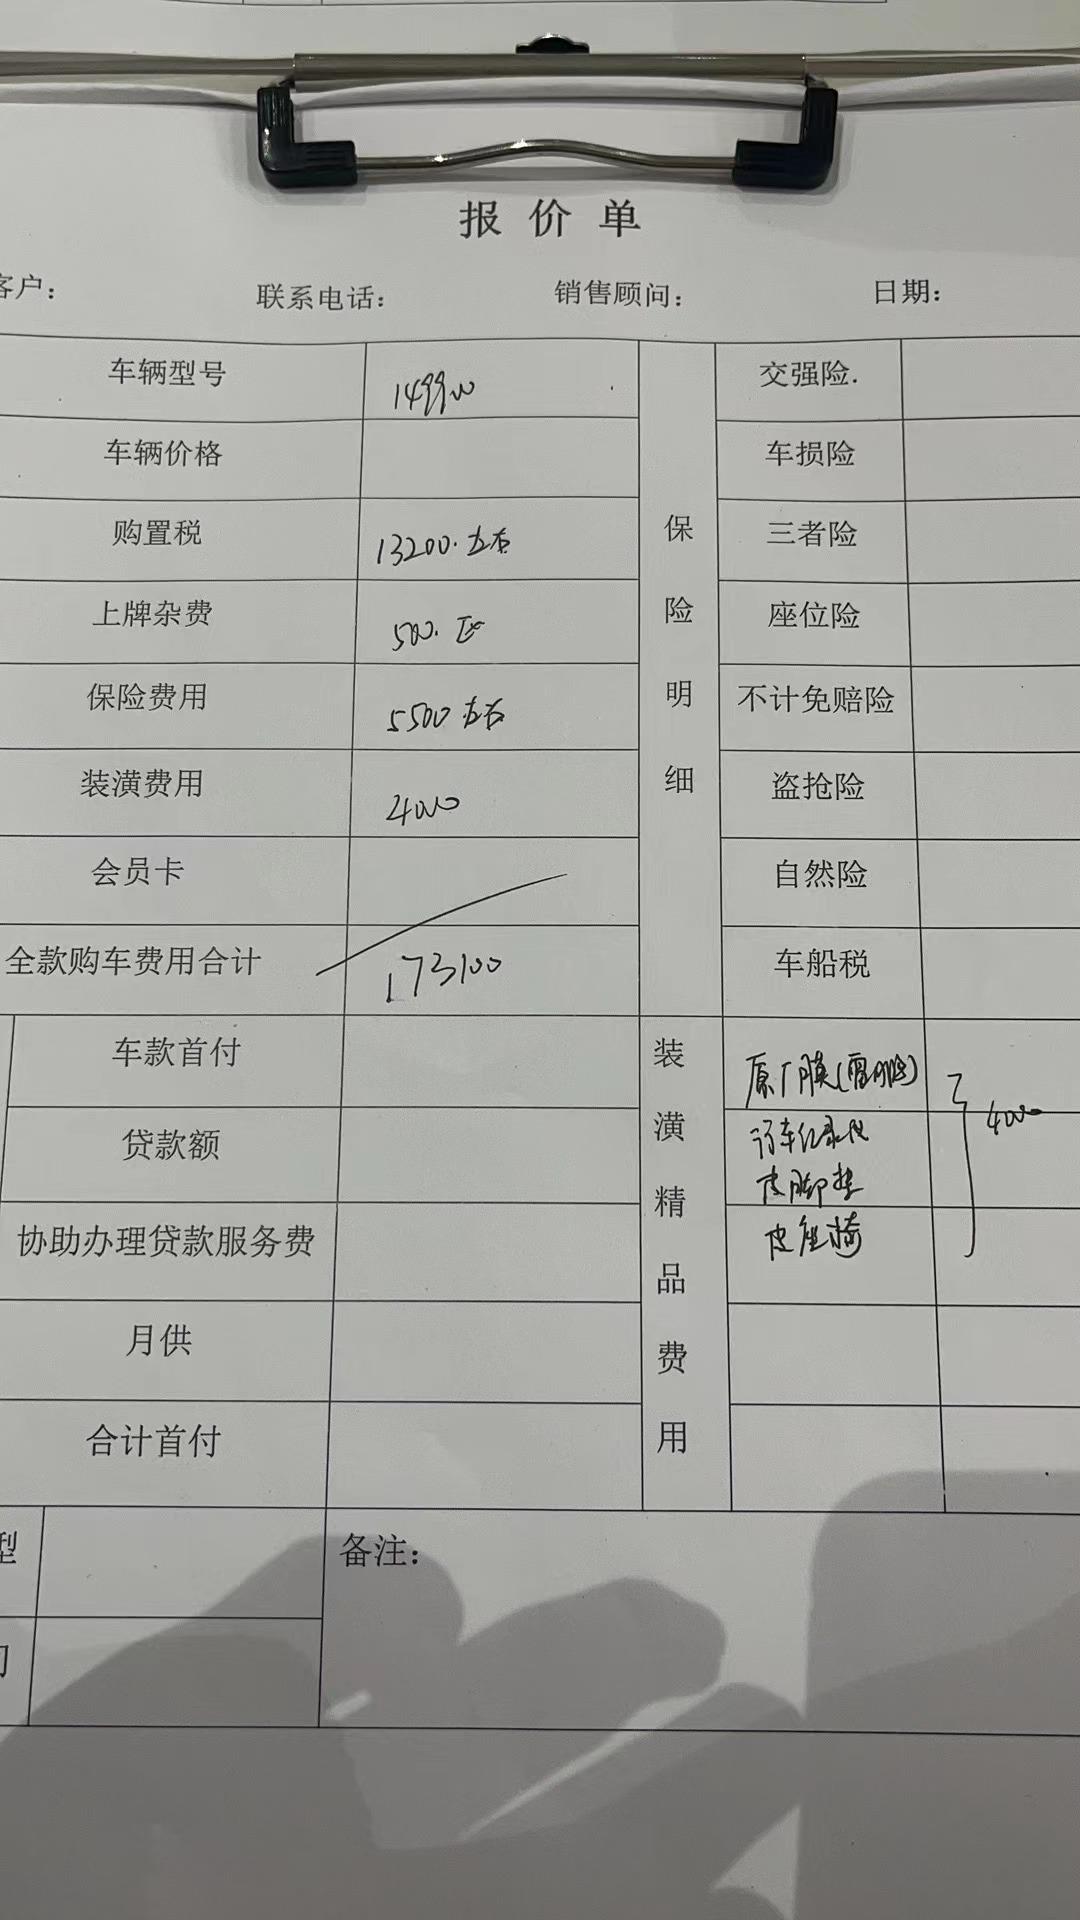 报价单
客户： 联系电话： 销售顾问： 日期：
车辆型号 149900 交强险.
车辆价格 车损险
购置税 13200.左右 三者险
上牌杂费 500. 座位险
保险费用 5500 左右 不计免赔险
装潢费用 4000 盗抢险
会员卡 自然险
全款购车费用合计 173100 车船税
保险明细
车款首付 原厂膜(雷朋)
贷款额 行车记录仪
皮脚垫
4000
协助办理贷款服务费 皮座椅
月供
合计首付
装潢精品费用
型 备注：